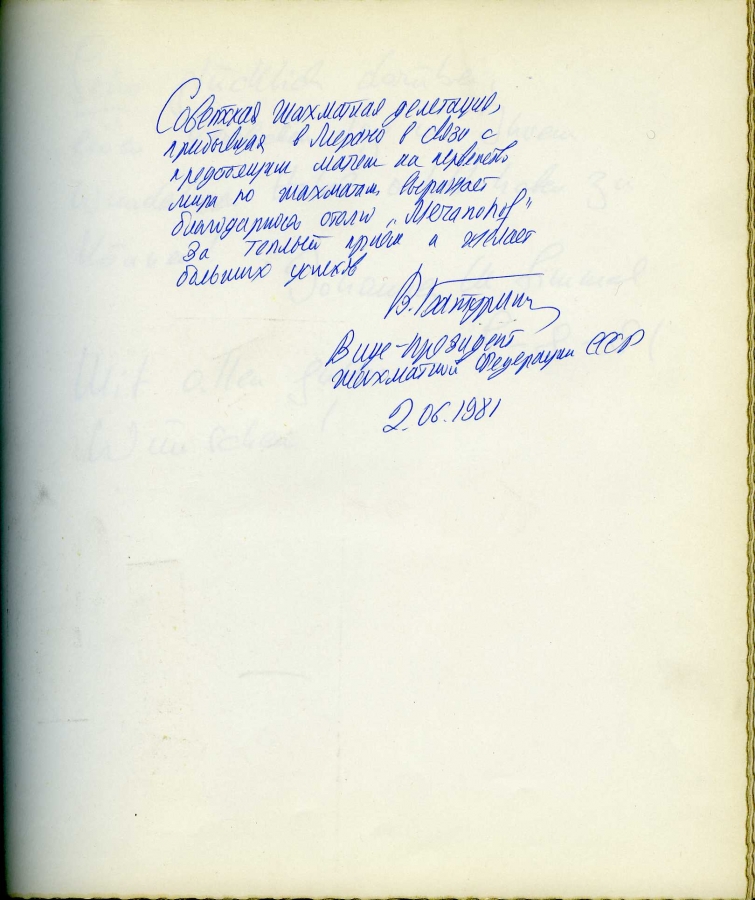 Советская шахматная делегация,
прибывшая в Мерано в связи с
предстоящим матчем на первенство
мира по шахматам, выражает
благодарность отелю
за теплый приём и желает
больших успехов
В. Батурин
Вице-президент
шахматной Федерации СССР
2.06.1981
Mit allen